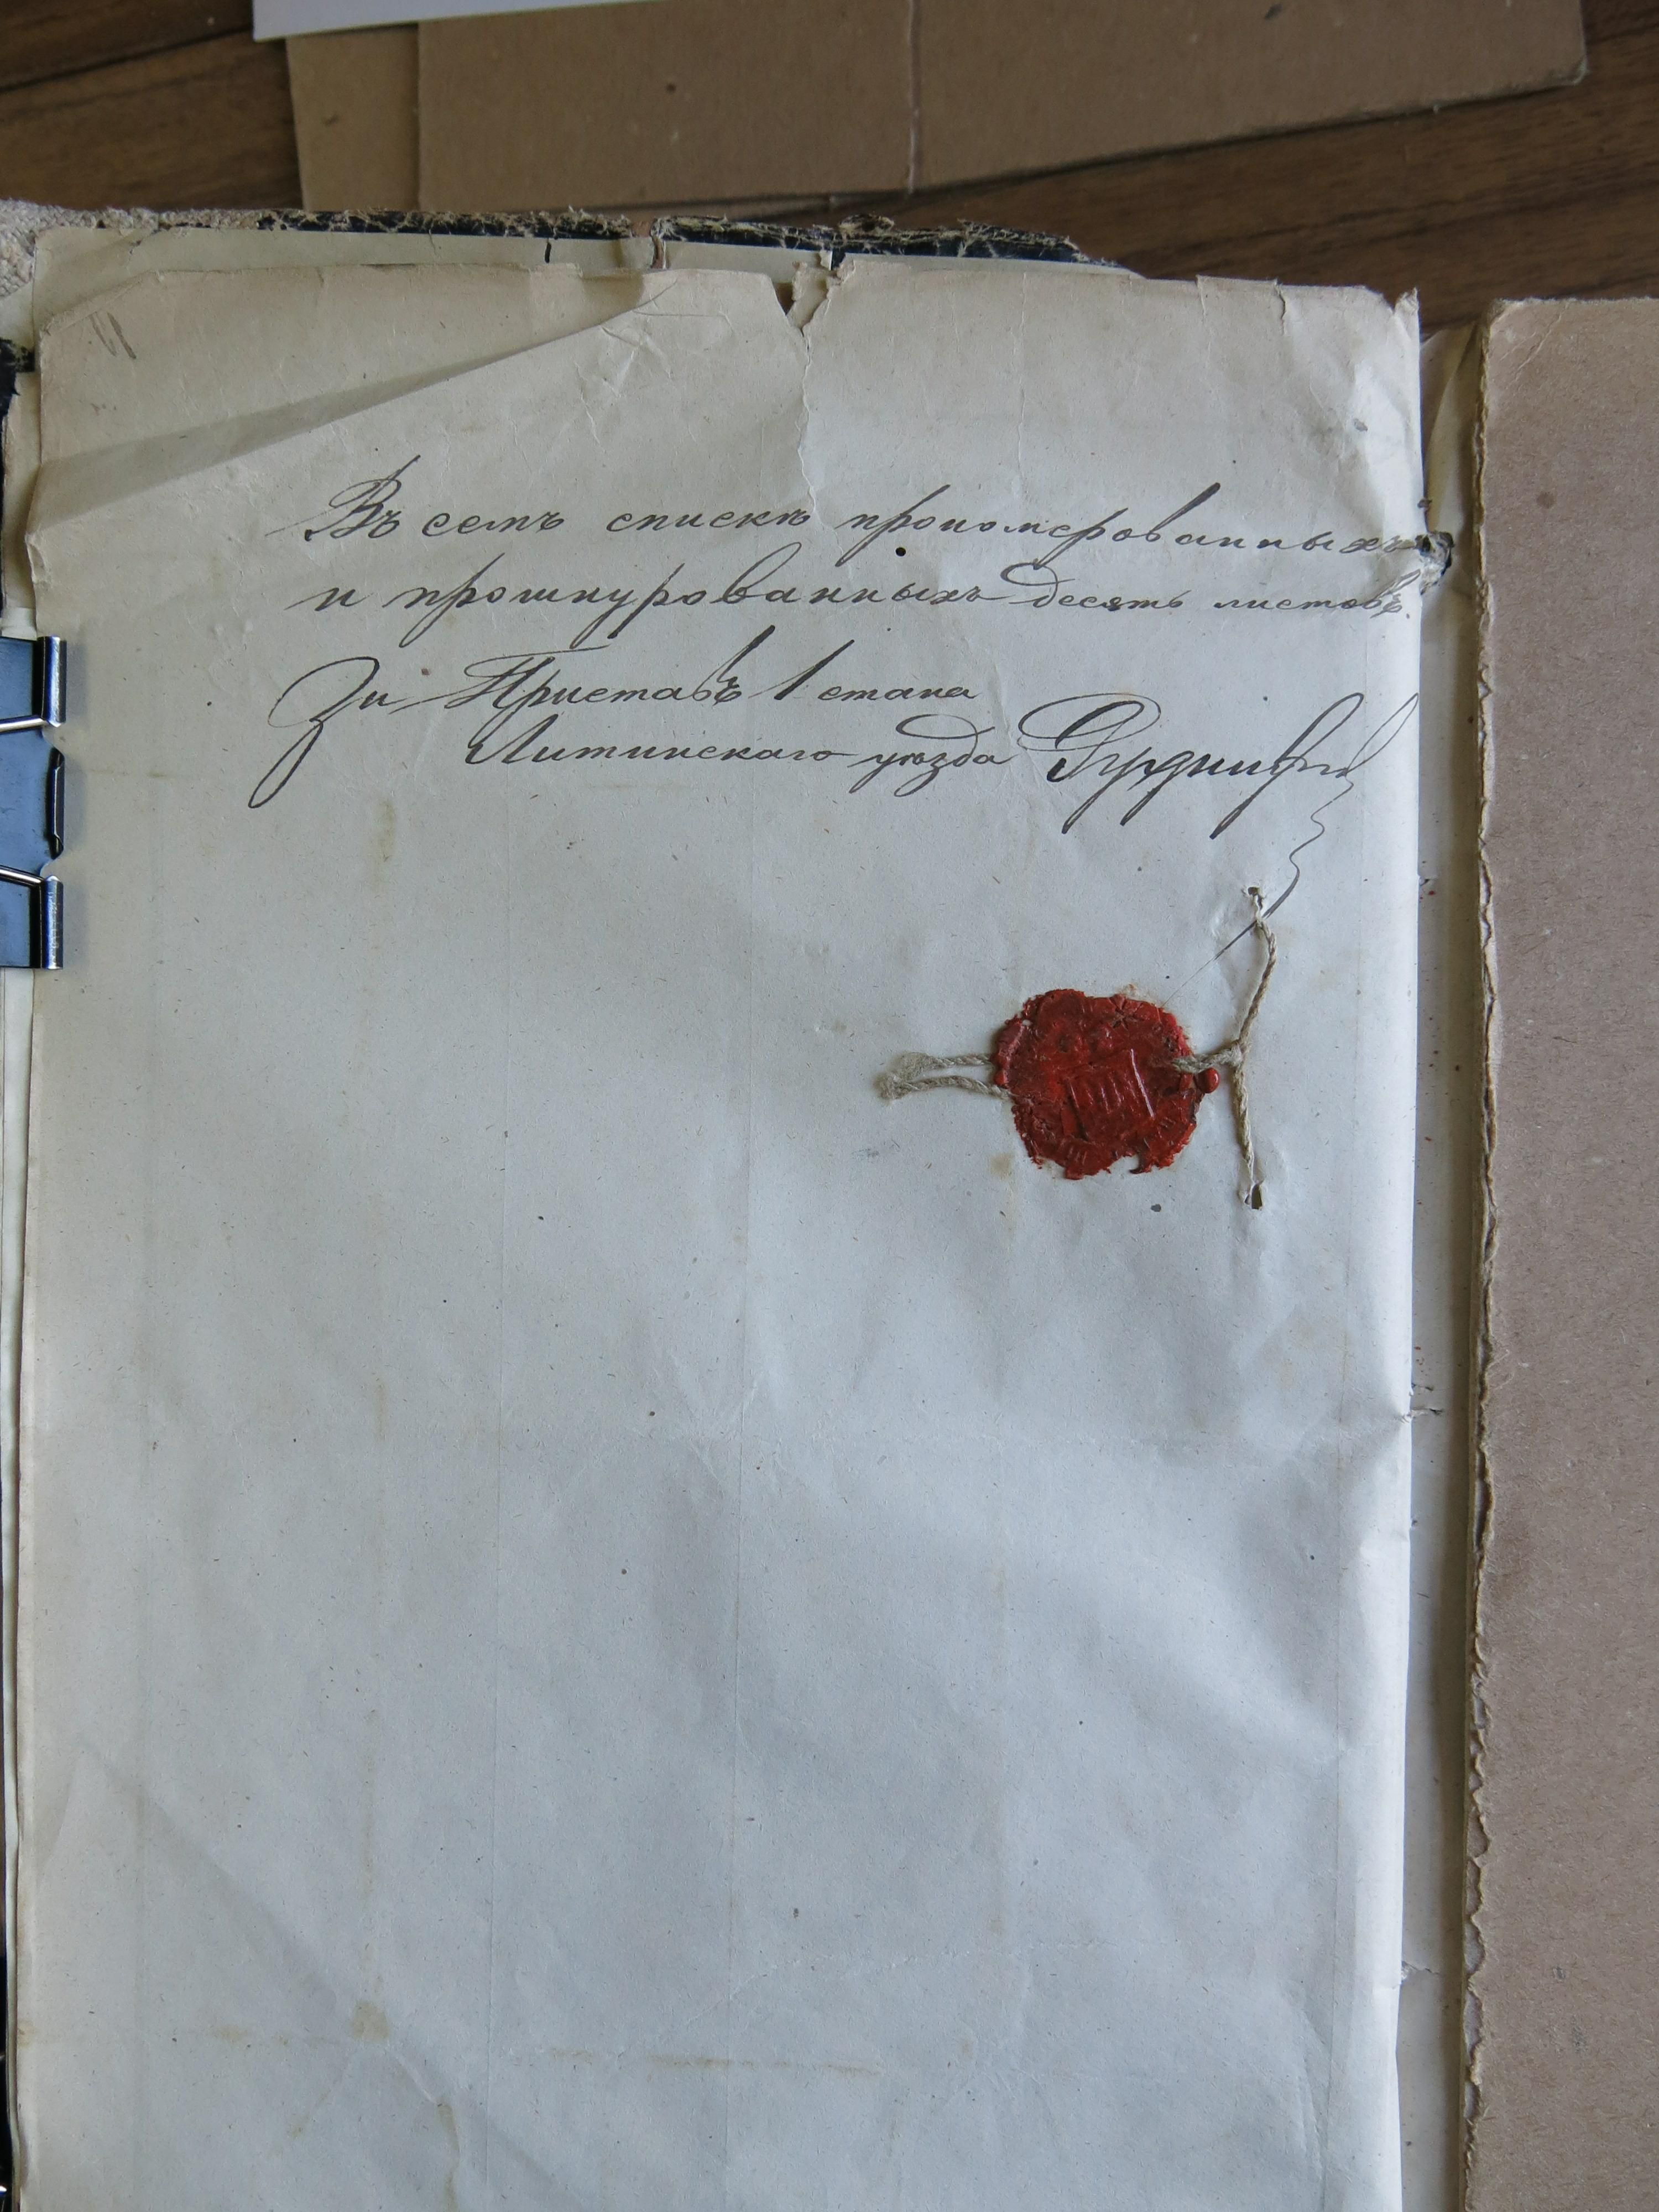 Въ семъ спискѣ прономерованныхъ
и прошнурованныхъ десять листовъ.
За Приставъ 1 стана
Литинскаго уѣзда